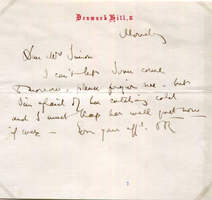 Denmark Hill, S.
Monday
Dear Mrs Simon
I can't let Joan come
tomorrow, please forgive me - but
I'm afraid of her catching cold
and I must keep her well just now
if ever -